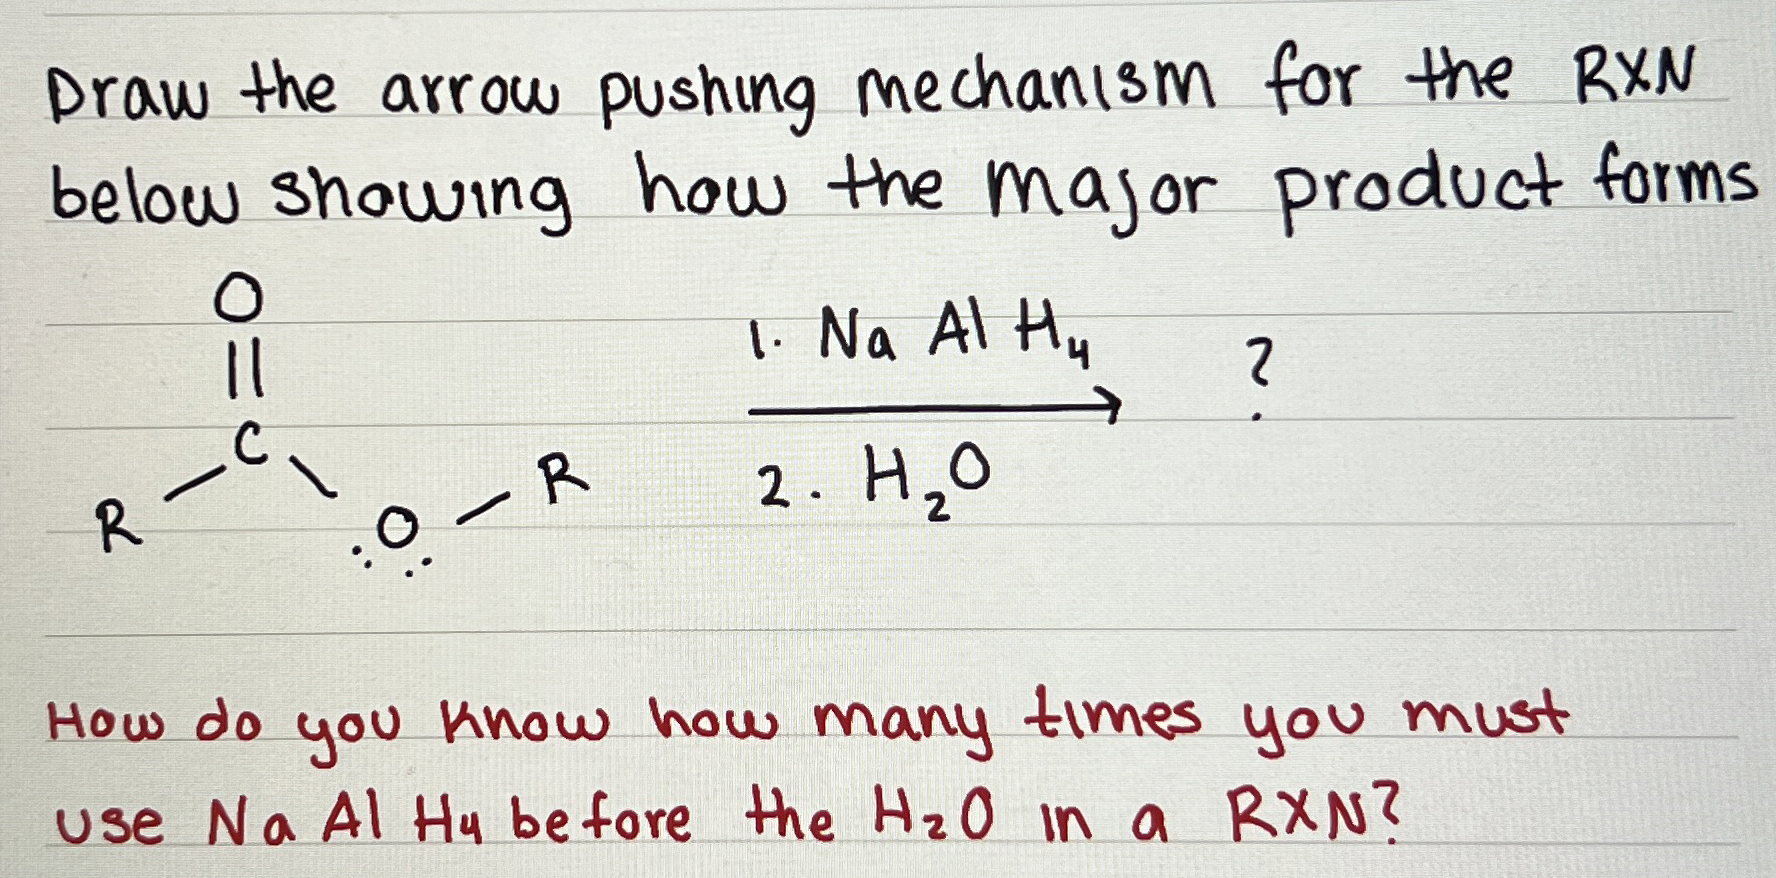 Draw the arrow pushing mechanism for the RXN
below showing how the major product forms
O
||
C
R
:O:
R
1. NaAlH₄
2. H₂O
?
How do you know how many times you must
use NaAlH₄ before the H₂O in a RXN?